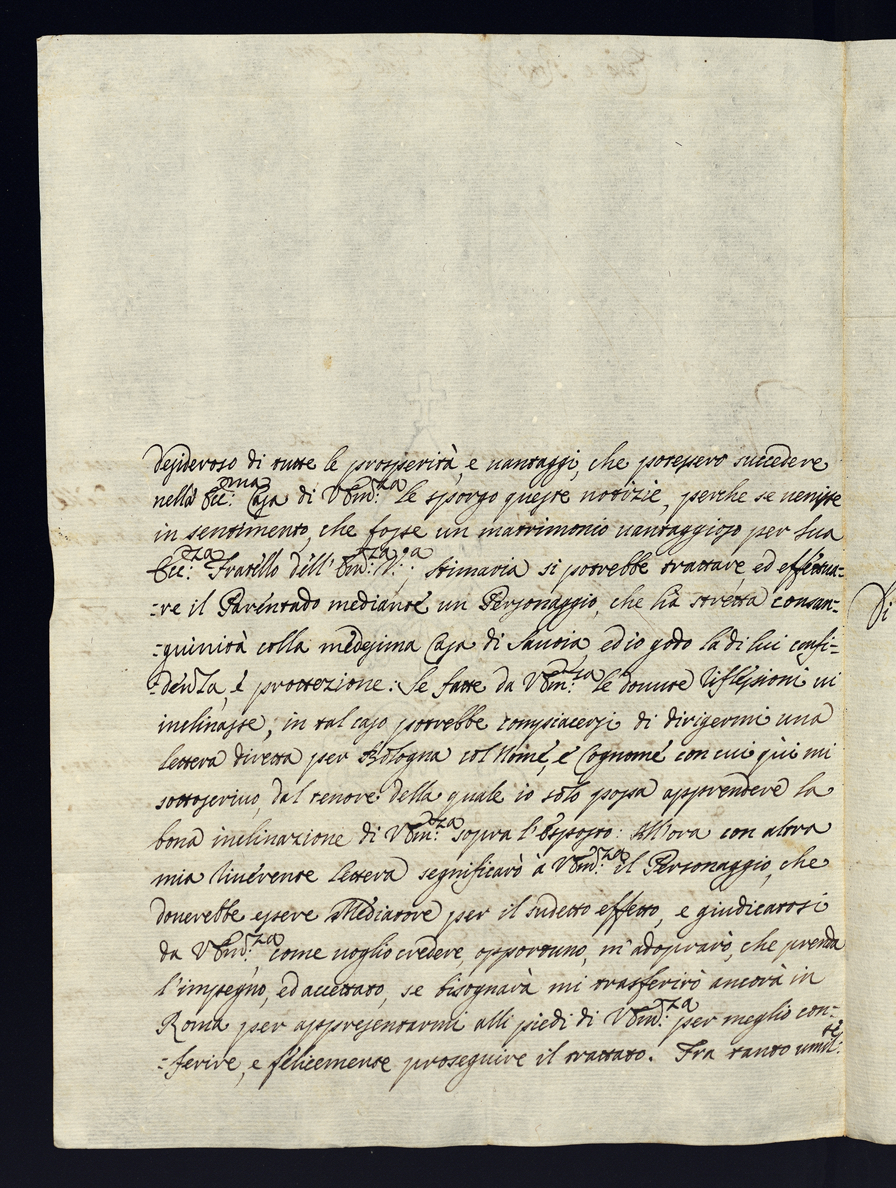 desideroso di tutte le prosperità, e uantaggi, che potessero succedere
nella Ecc:ma Casa di V Em:za le sporgo queste notizie, perche se uenisse
in sentimento, che fosse un matrimonio uantaggioso per sua
Ecc:za Fratello dell' Em:za V:a stimaria si potrebbe trattare, ed effettua=
=re il Parentado mediante un Personaggio, che hà stretta consan=
=guinità colla medesima Casa di Sauoia ed io godo la di lui confi=
=denza, è protezione: Se fatte da V Em:za le douute riflessioni ui
inclinasse, in tal caso potrebbe compiacersi di dirigermi una
lettera diretta per Bologna col Nome, e Cognome con cui qui mi
sottoscriuo, dal tenore della quale io solo possa apprendere la
bona inclinazione di V Em:za sopra l'Esposto: All'ora con altra
mia riuerente lettera significarò à V Em:za il Personaggio, che
douerebbe essere Mediatore per il sudetto effetto, e giudicatosi
da V Em:za come uoglio credere, opportuno, m'adoprarò, che prenda
l'impegno, ed accettato, se bisognarà mi trasferirò ancora in
Roma per appresentarmi alli piedi di V Em:za per meglio con=
=ferire, e felicemente proseguire il trattato. Fra tanto umil:te
Di